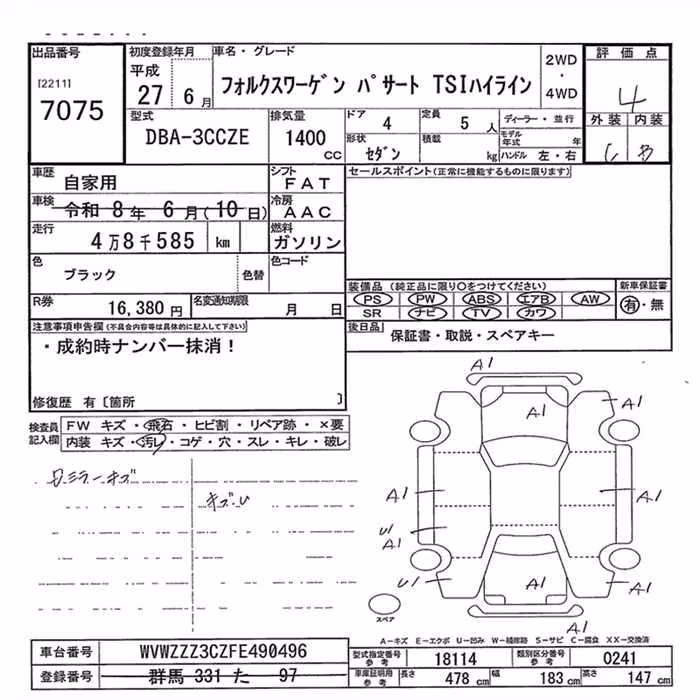 出品番号
[2211]
7075
初度登録年月
平成
27 6月
車名・グレード
フォルクスワーゲン パサート TSIハイライン
2WD
・
4WD
評価点
4
外装 内装
C B
型式
DBA-3CCZE
排気量
1400
CC
ドア
4
定員
5 人
ディーラー・並行
モデル
年式 年
形状
セダン
積載
kg
ハンドル 左・右
車歴
自家用
シフト
FAT
車検
令和 8年 6月(10日)
冷房
AAC
走行
4万8千585 km
燃料
ガソリン
色
ブラック
色替
色コード
R券
16,380円
名変通知期限
月 日
セールスポイント(正常に機能するものに限ります)
装備品 (純正品に限り○をつけてください)
PS PW ABS エアB AW
SR ナビ TV カワ
新車保証書
有・無
後日品
保証書・取説・スペアキー
注意事項申告欄(不具合内容等は具体的に記入して下さい)
・成約時ナンバー抹消!
修復歴 有〔箇所 〕
検査員
記入欄
FW キズ・飛石・ヒビ割・リペア跡・×要
内装 キズ・汚レ・コゲ・穴・スレ・キレ・破レ
ミラーキズ
キズ・U
A1
A1
A1
A1
A1
A1
U1
A1
U1
A1
A1
A1
スペア
A-キズ E-エクボ U-凹み W-補修跡 S-サビ C-腐食 XX-交換済
車台番号
WVWZZZ3CZFE490496
登録番号
群馬 331 た 97
型式指定番号
参考
18114
類別区分番号
参考
0241
車庫証明用
参考
長さ
478 cm
幅
183 cm
高さ
147 cm